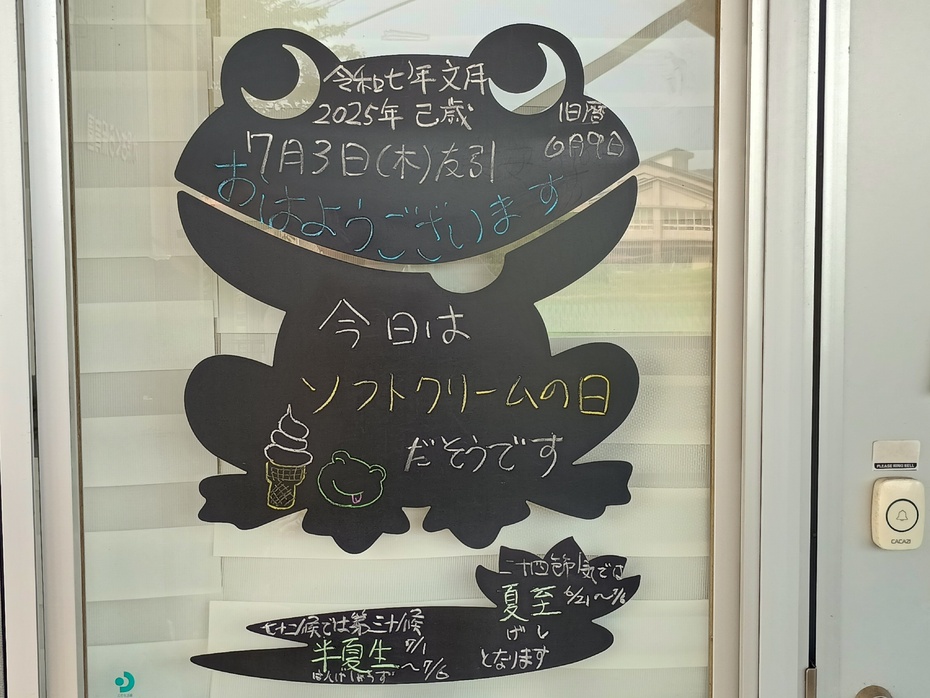 令和七年文月
2025年 己歳
旧暦
6月9日
7月3日(木)友引
おはようございます
今日は
ソフトクリームの日
だそうです
二十四節気では
夏至 6/21〜7/6
げし
となります
七十二候では第三十候
半夏生 7/1〜7/6
はんげしょうず
PLEASE RING BELL
CACAZI